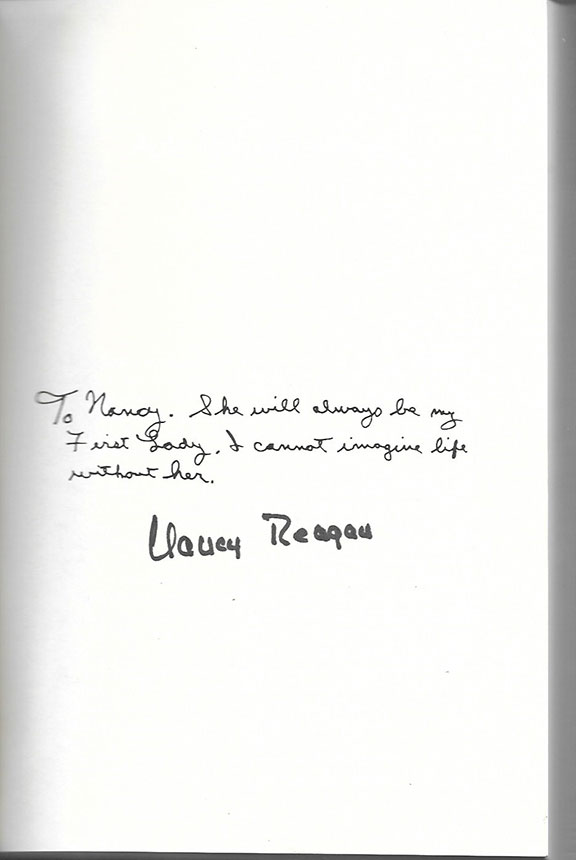 To Nancy. She will always be my
First Lady. I cannot imagine life
without her.
Nancy Reagan